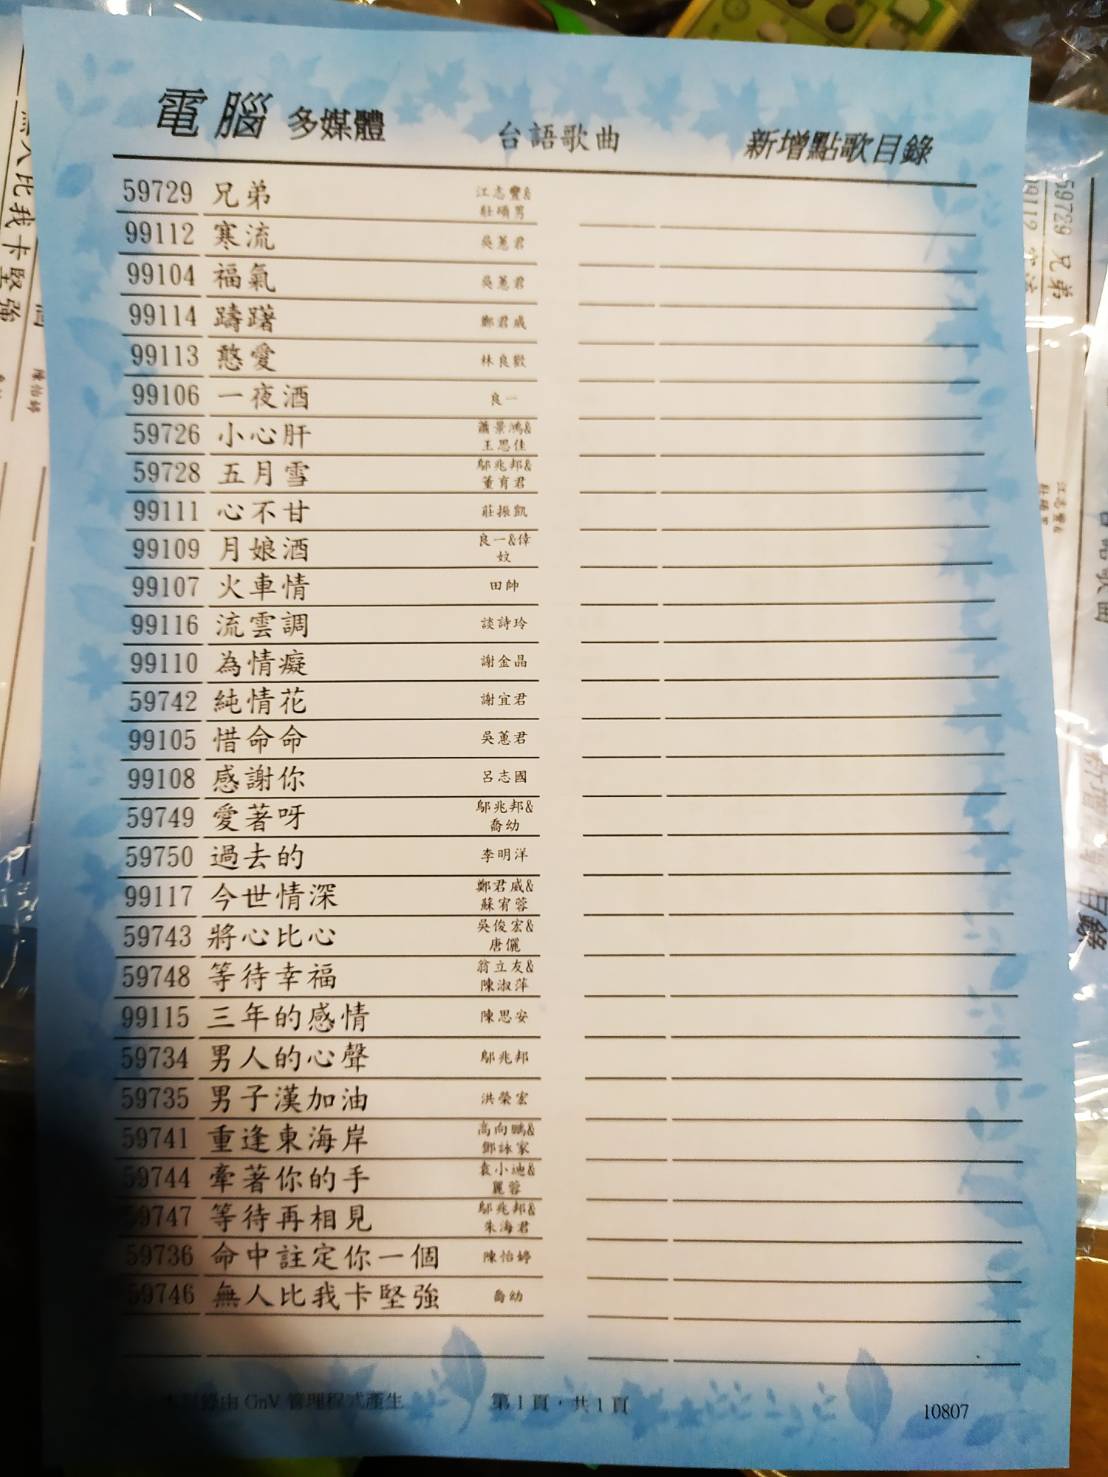 電腦 多媒體 台語歌曲 新增點歌目錄
59729 兄弟 江志豐&
杜碩男
99112 寒流 吳蕙君
99104 福氣 吳蕙君
99114 躊躇 鄭君威
99113 憨愛 林良歡
99106 一夜酒 良一
59726 小心肝 蕭景鴻&
王思佳
59728 五月雪 鄔兆邦&
董育君
99111 心不甘 莊振凱
99109 月娘酒 良一&偉
妏
99107 火車情 田帥
99116 流雲調 談詩玲
99110 為情癡 謝金晶
59742 純情花 謝宜君
99105 惜命命 吳蕙君
99108 感謝你 呂志國
59749 愛著呀 鄔兆邦&
喬幼
59750 過去的 李明洋
99117 今世情深 鄭君威&
蘇宥蓉
59743 將心比心 吳俊宏&
唐儷
59748 等待幸福 翁立友&
陳淑萍
99115 三年的感情 陳思安
59734 男人的心聲 鄔兆邦
59735 男子漢加油 洪榮宏
59741 重逢東海岸 高向鵬&
鄧詠家
59744 牽著你的手 袁小迪&
麗蓉
59747 等待再相見 鄔兆邦&
朱海君
59736 命中註定你一個 陳怡婷
59746 無人比我卡堅強 喬幼
錄由 GnV 管理程式產生 第1頁，共1頁 10807
無人比我卡堅強
陳怡婷
59729 兄弟
99112
江志豐&
台語歌曲
新增點歌目錄